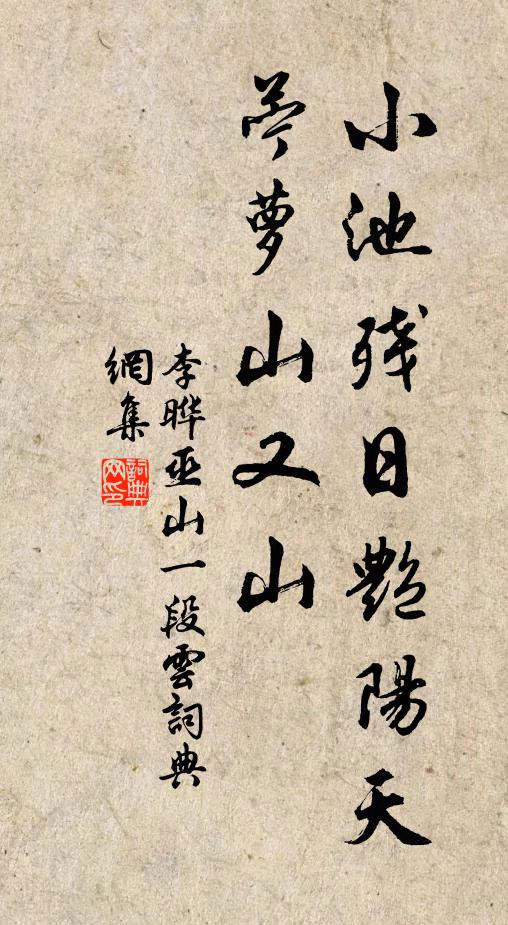 小池残日艷陽天
苎萝山又山
李晔巫山一段雲詞典
網集
詞典网印